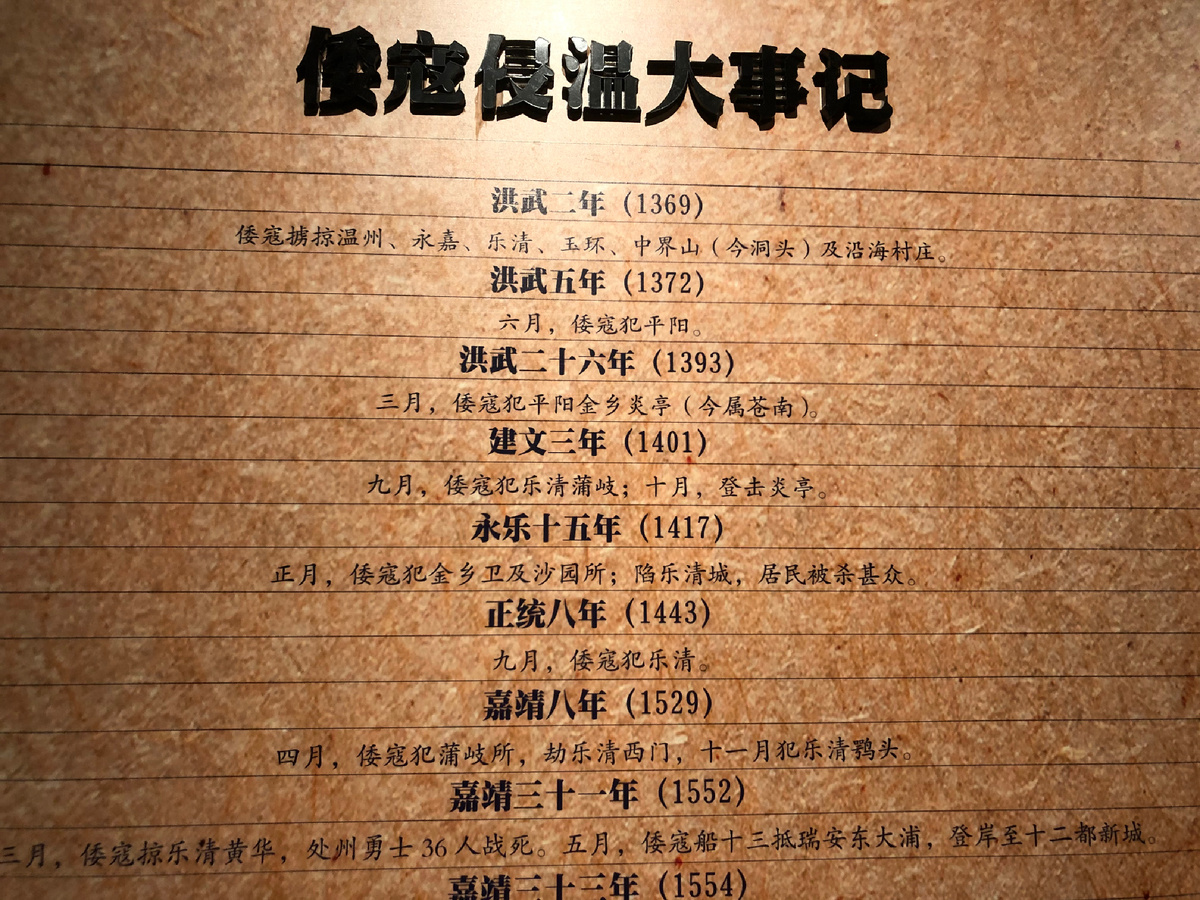 倭寇侵温大事记
洪武二年（1369）
倭寇掳掠温州、永嘉、乐清、玉环、中界山（今洞头）及沿海村庄。
洪武五年（1372）
六月，倭寇犯平阳。
洪武二十六年（1393）
三月，倭寇犯平阳金乡炎亭（今属苍南）。
建文三年（1401）
九月，倭寇犯乐清蒲岐；十月，登击炎亭。
永乐十五年（1417）
正月，倭寇犯金乡卫及沙园所；陷乐清城，居民被杀甚众。
正统八年（1443）
九月，倭寇犯乐清。
嘉靖八年（1529）
四月，倭寇犯蒲岐所，劫乐清西门，十一月犯乐清鹗头。
嘉靖三十一年（1552）
三月，倭寇掠乐清黄华，处州勇士36人战死。五月，倭寇船十三抵瑞安东大浦，登岸至十二都新城。
嘉靖三十三年（1554）